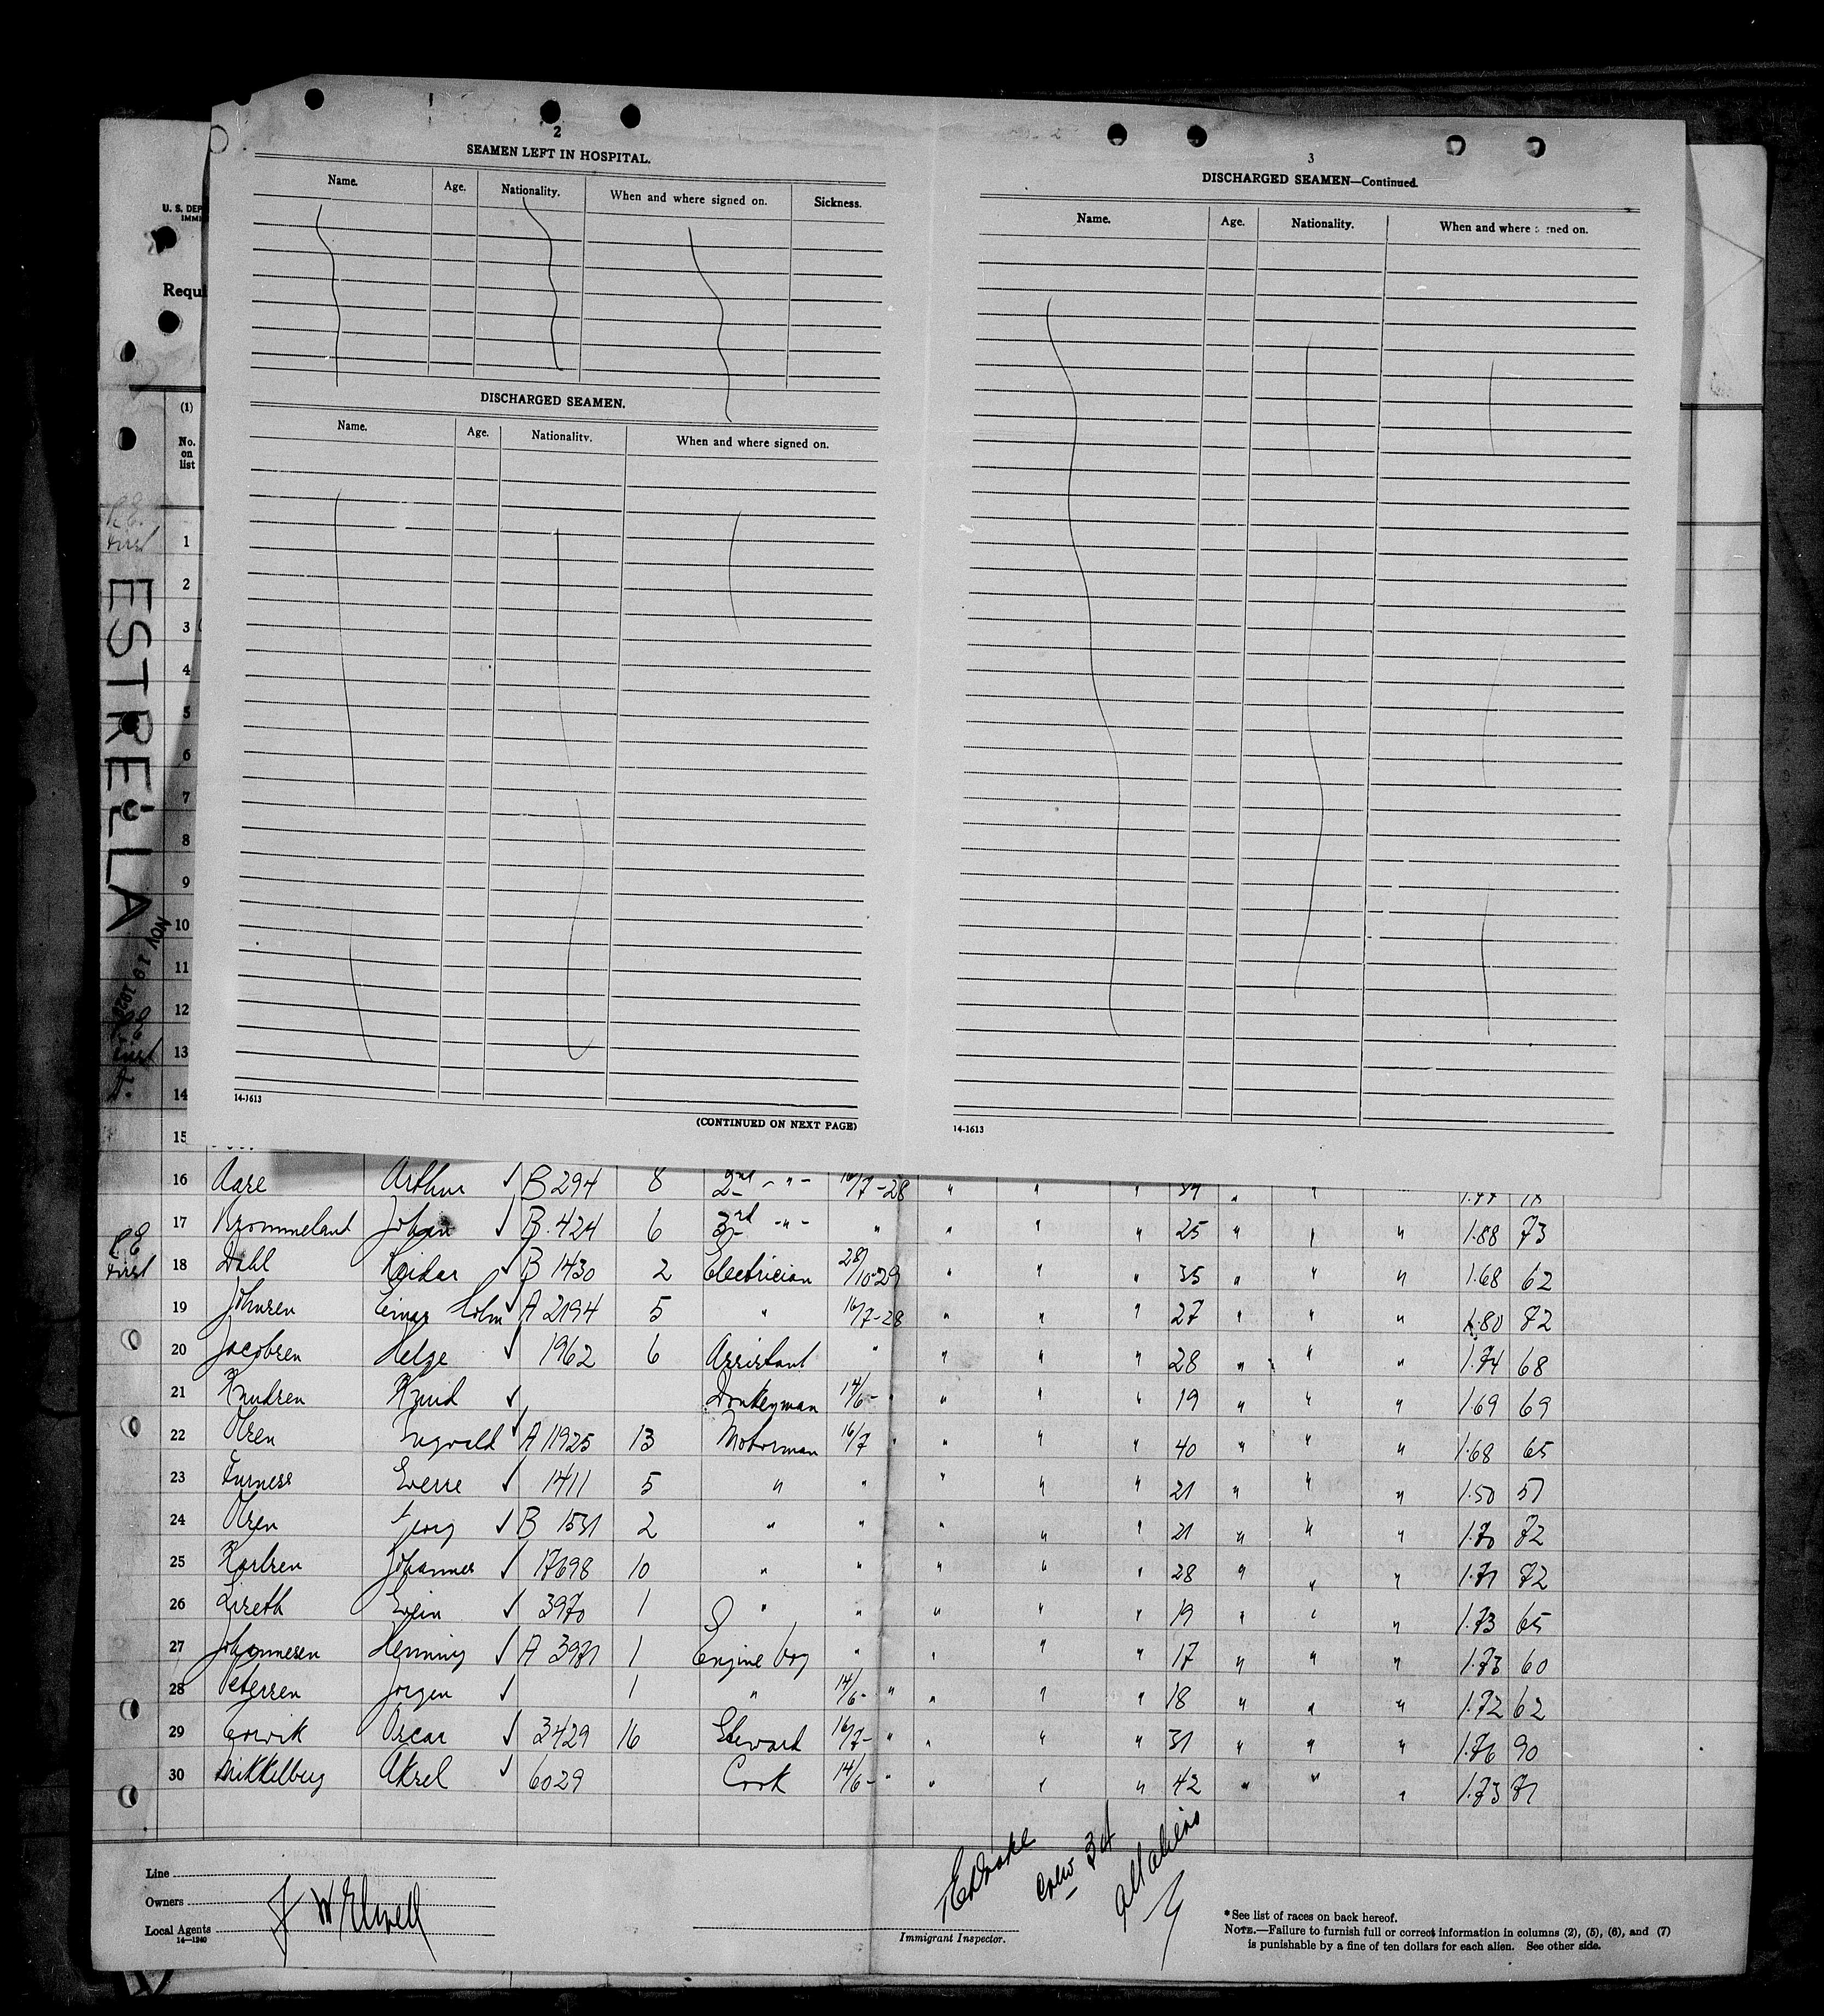 2
SEAMEN LEFT IN HOSPITAL.
Name. Age. Nationality. When and where signed on. Sickness.
DISCHARGED SEAMEN.
Name. Age. Nationality. When and where signed on.
14-1613
(CONTINUED ON NEXT PAGE)
3
DISCHARGED SEAMEN—Continued.
Name. Age. Nationality. When and where signed on.
14-1613
U. S. DEP
IMMI
Requi
(1)
No.
on
list
ESTRELLA
NOV 19
1
2
3
4
5
6
7
8
9
10
11
12
13
14
15
16 Aare Arthur B 294 8 2nd - " - 16/7-28 " " " " "
17 Brommeland Johan B. 424 6 3rd - " - " " " " 25 " " " 1.88 73
18 Dahl Reidar B 1430 2 Electrician 28/10-29 " " " 35 " " " 1.68 62
19 Johnsen Einar Holm A 2194 5 " 16/7-28 " " " 27 " " " 1.80 72
20 Jacobsen Helge 1962 6 Assistant " " " " 28 " " " 1.74 68
21 Knudsen Knud Donkeyman 14/6- " " " " 19 " " " 1.69 69
22 Olsen Ingvald A 11925 13 Motorman 16/7 " " " " 40 " " " 1.68 65
23 Furness Sverre 1411 5 " " " " " 21 " " " 1.50 57
24 Olsen B 1531 2 " " " " " 21 " " " 1.70 72
25 Karlsen Johannes 17698 10 " " " " " 28 " " " 1.71 72
26 Lireth Svein 3970 1 " " " " " 19 " " " 1.73 65
27 Johannesen Henning A 3971 1 Engine boy " " " " 17 " " " 1.73 60
28 Petersen Jörgen 1 " 14/6- " " " " 18 " " " 1.72 62
29 Oscar 3429 16 Steward 16/7- " " " " 31 " " " 1.76 90
30 Mikkelberg Aksel 6029 Cook 14/6- " " " " 42 " " " 1.73 71
Line
Owners
Local Agents J W Elwell
14—1240
Crew 34
All aliens
Immigrant Inspector.
* See list of races on back hereof.
NOTE.—Failure to furnish full or correct information in columns (2), (5), (6), and (7)
is punishable by a fine of ten dollars for each alien. See other side.